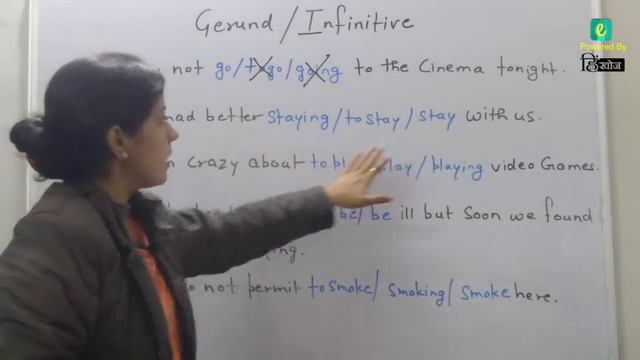 Gerund / Infinitive
not go/to go/going to the Cinema tonight.
had better Staying / to stay / stay with us.
crazy about to play / playing video Games.
be/ be ill but Soon we found
o not permit to smoke/ smoking/ smoke here.
Powered By
हिंखोज